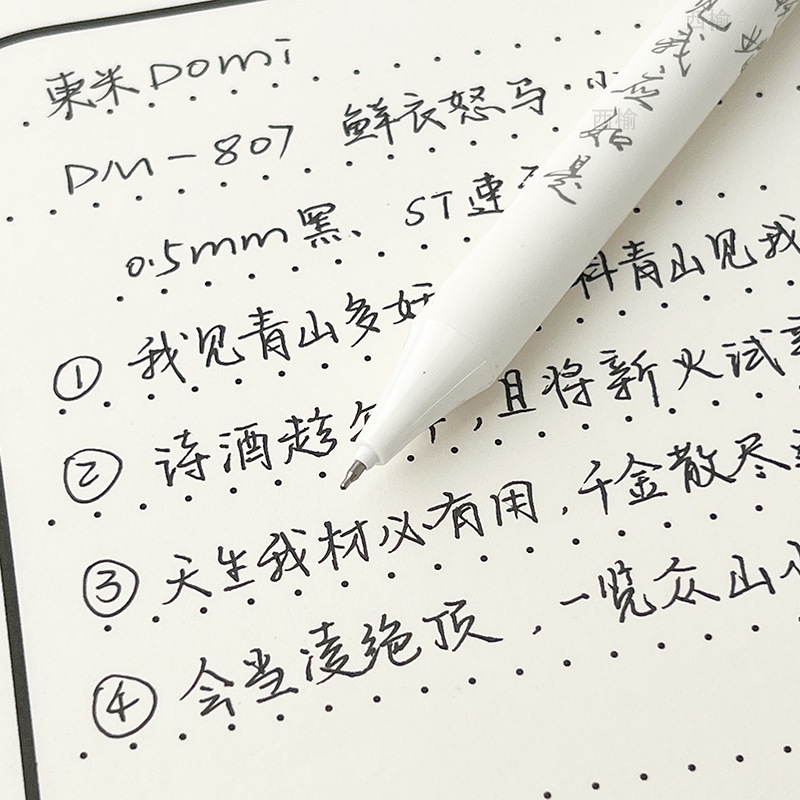 東米 Domi
DM-807 鲜衣怒马·
0.5mm黑、ST速
① 我见青山多妩 料青山见我
② 诗酒趁 ,且将新火试
③ 天生我材必有用,千金散尽
④ 会当凌绝顶,一览众山小
见
我
应
如
是
西榆
西榆